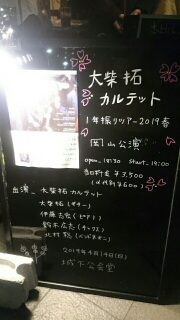 大柴 拓
カルテット
1年振ツアー2019春
岡山公演
open_18:30 Start_19:00
当日料金 ¥3.500
(+1D代別¥600)
出演_ 大柴拓カルテット
大柴拓(ギター)
伊藤志宏(ピアノ)
鈴木広志(サックス)
北村聡(バンドネオン)
2019年4月14日(日)
城下公会堂